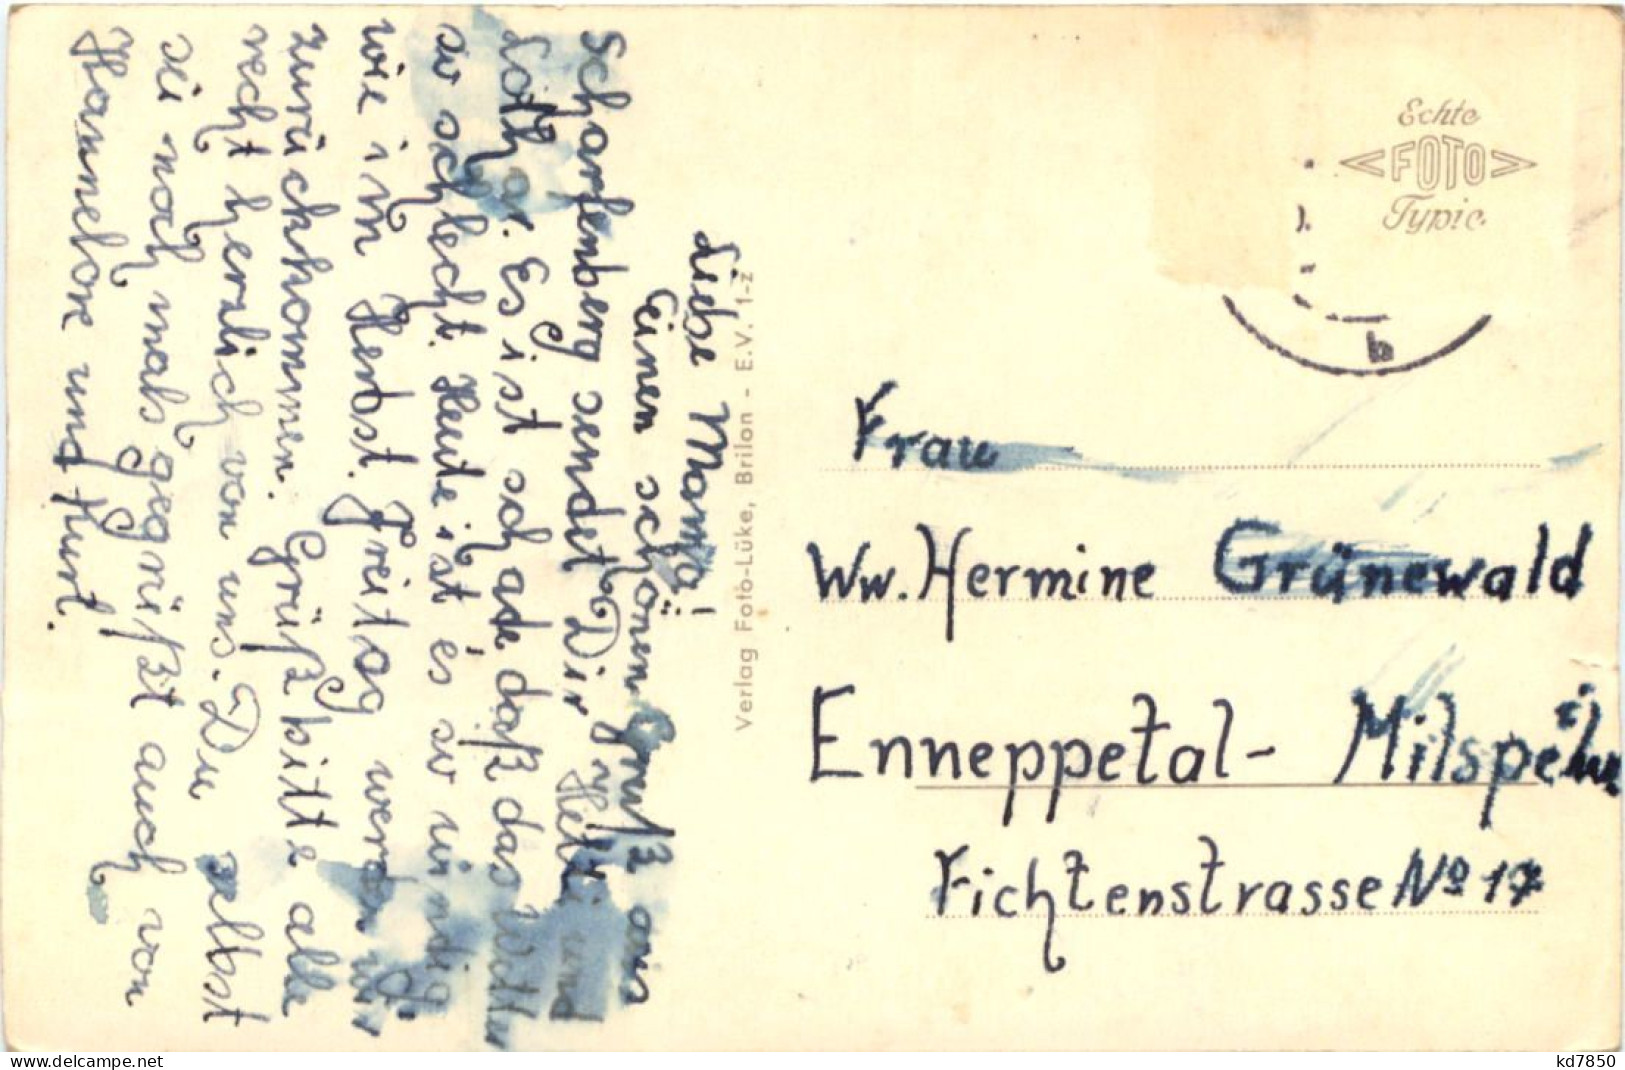 Liebe Mama!
Einen schönen Gruß aus
Scharfenberg sendet Dir Hetti und
Lothar. Es ist schade daß das Wetter
so schlecht. Heute ist es so windig
wie im Herbst. Freitag werden wir
zurückkommen. Grüß bitte alle
recht herzlich von uns. Du selbst
sei noch mals gegrüßt auch von
Hannelore und Kurt.
Verlag Foto-Lüke, Brilon - E.V. 1-z
Echte
<FOTO>
Typie
b
Frau
Ww. Hermine Grünewald
Enneppetal-
Fichtenstrasse No 17
delcampe.net
kd7850